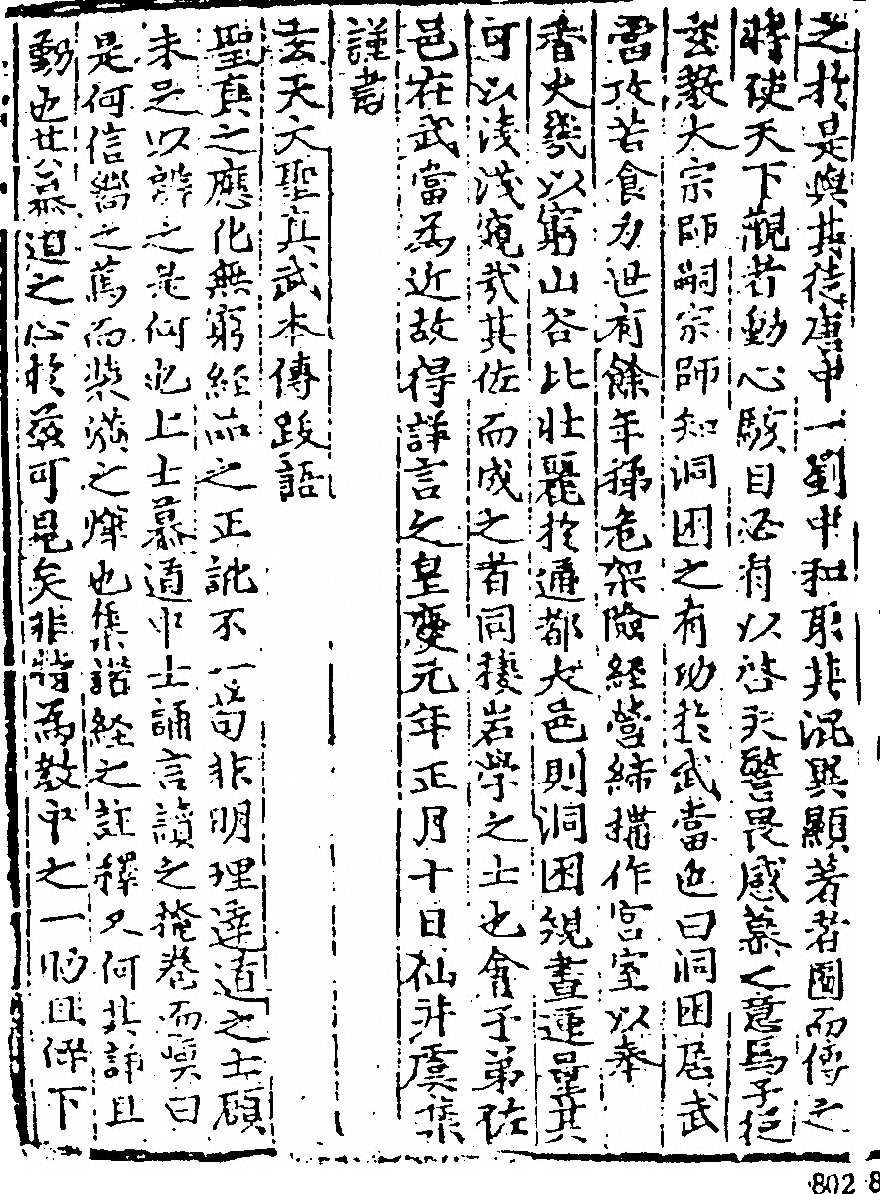 之於是與其徒唐中一劉中和取其混異顯著者圖而傳之
將使天下觀者動心駭目必有以啓天警畏感慕之意焉予從
玄教大宗師嗣宗師知洞囷之有功於武當也曰洞囷居武
當攻苦食力逝有餘年梯危架險經營締搆作宮室以奉
香火幾以窮山谷比壯麗於通都大邑則洞囷規畫運量其
可以淺淺窺哉其佐而成之者同棲岩學之士也會予弟佐
邑在武當為近故得詳言之皇慶元年正月十日仙井虞集
謹書
玄天大聖真武本傳跋語
聖真之應化無窮經品之正訛不一苟非明理達道之士碩
未足以辨之是何也上士慕道中士誦言讀之掩卷而嘆曰
是何信嚮之篤而柴潢之燁也集諧經之註釋又何其詳且
勤也其慕道之心於茲可見矣非特為教中之一助且俾下
802 8